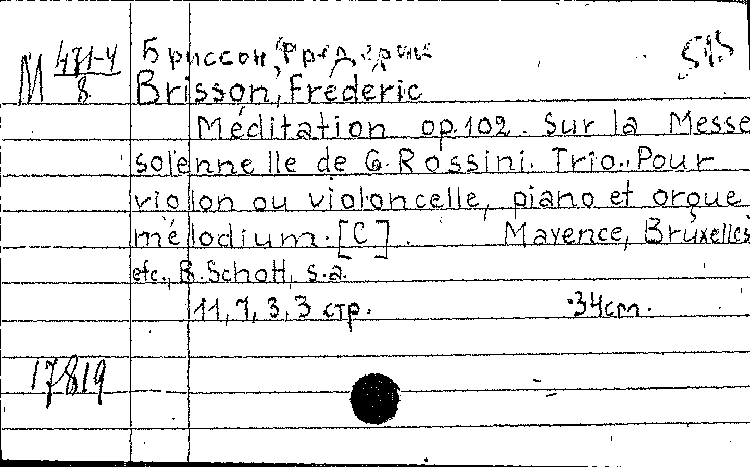 М 471-4/8 Бриссон, Фредерик 
Brisson, Frederic
Méditation op.102. Sur la Messe
solennelle de G. Rossini. Trio.. Pour
violon ou violoncelle, piano et orgue
mélodium. [C]. Mayence, Bruxelles
etc., B. Schott, s.a.
11, 7, 3, 3 стр. 34cm.
17819